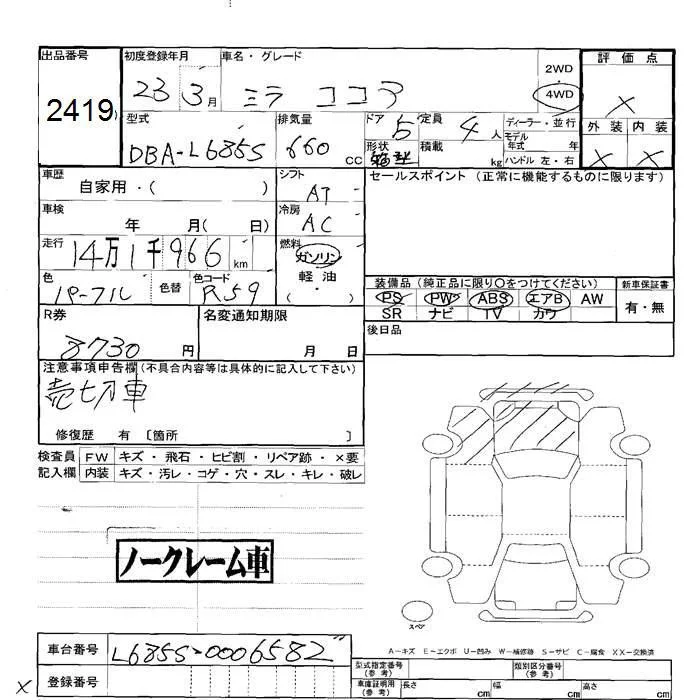 出品番号 初度登録年月 車名・グレード 2WD 評価点
2419 23 3月 ミラ ココア 4WD X
型式 排気量 ドア 5 定員 4人 ディーラー・並行 外装 内装
DBA-L685S 660cc 形状 箱型 積載 kg モデル年式 年 X X
ハンドル 左・右
車歴 自家用・( ) シフト AT セールスポイント (正常に機能するものに限ります)
車検 年 月( 日) 冷房 AC
走行 14万1千966km 燃料 ガソリン
軽油
・
( )
色 パープル 色替 色コード R59
装備品(純正品に限り〇をつけてください) 新車保証書
PS PW ABS エアB AW 有・無
SR ナビ TV カワ
R券 8730円 名変通知期限 月 日 後日品
注意事項申告欄(不具合内容等は具体的に記入して下さい)
売切車
修復歴 有 〔箇所 〕
検査員 FW キズ・飛石・ヒビ割・リペア跡・×要
記入欄 内装 キズ・汚レ・コゲ・穴・スレ・キレ・破レ
ノークレーム車
スペア
A－キズ E－エクボ U－凹み W－補修跡 S－サビ C－腐食 XX－交換済
車台番号 L685S-0006582〃
X 登録番号
型式指定番号(参考) 類別区分番号(参考)
車庫証明用(参考) 長さ cm 幅 cm 高さ cm